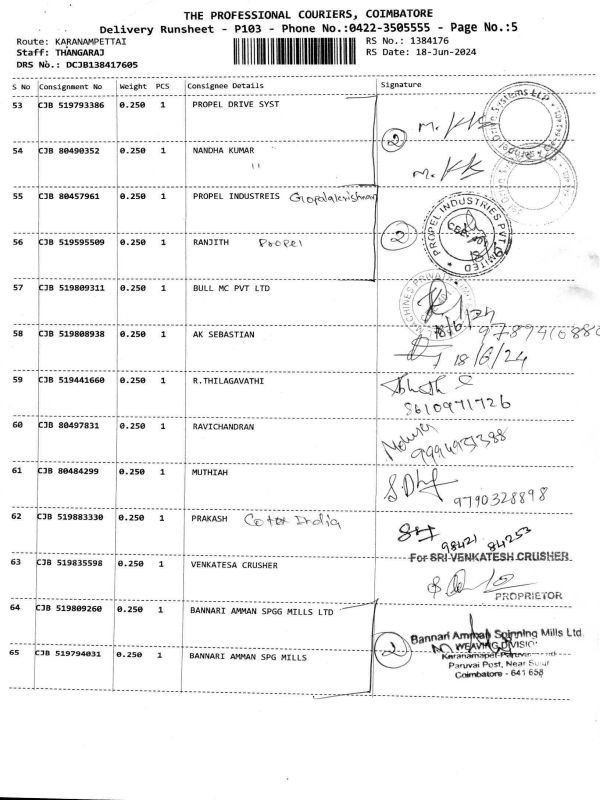 THE PROFESSIONAL COURIERS, COIMBATORE
Delivery Runsheet - P103 - Phone No.:0422-3505555 - Page No.:5
Route: KARANAMPETTAI
RS No.: 1384176
Staff: THANGARAJ
RS Date: 18-Jun-2024
DRS No.: DCJB138417605
S No Consignment No Weight PCS Consignee Details Signature
53 CJB 519793386 0.250 1 PROPEL DRIVE SYST
2
54 CJB 80490352 0.250 1 NANDHA KUMAR
"
55 CJB 80457961 0.250 1 PROPEL INDUSTREIS Gopalakrishnan
PROPEL INDUSTRIES PVT LIMITED
2
56 CJB 519595509 0.250 1 RANJITH Propel
57 CJB 519809311 0.250 1 BULL MC PVT LTD
18/6/24
58 CJB 519808938 0.250 1 AK SEBASTIAN
18/6/24
59 CJB 519441660 0.250 1 R.THILAGAVATHI
8610971726
60 CJB 80497831 0.250 1 RAVICHANDRAN
61 CJB 80484299 0.250 1 MUTHIAH
9790328898
62 CJB 519883330 0.250 1 PRAKASH India
98421 84253
For SRI VENKATESH CRUSHER
63 CJB 519835598 0.250 1 VENKATESA CRUSHER
PROPRIETOR
64 CJB 519809260 0.250 1 BANNARI AMMAN SPGG MILLS LTD
2
Bannari Amman Spinning Mills Ltd
WEAVING DIVISION
65 CJB 519794031 0.250 1 BANNARI AMMAN SPG MILLS
Paruvai Post, Near Sulur
Coimbatore - 641 658